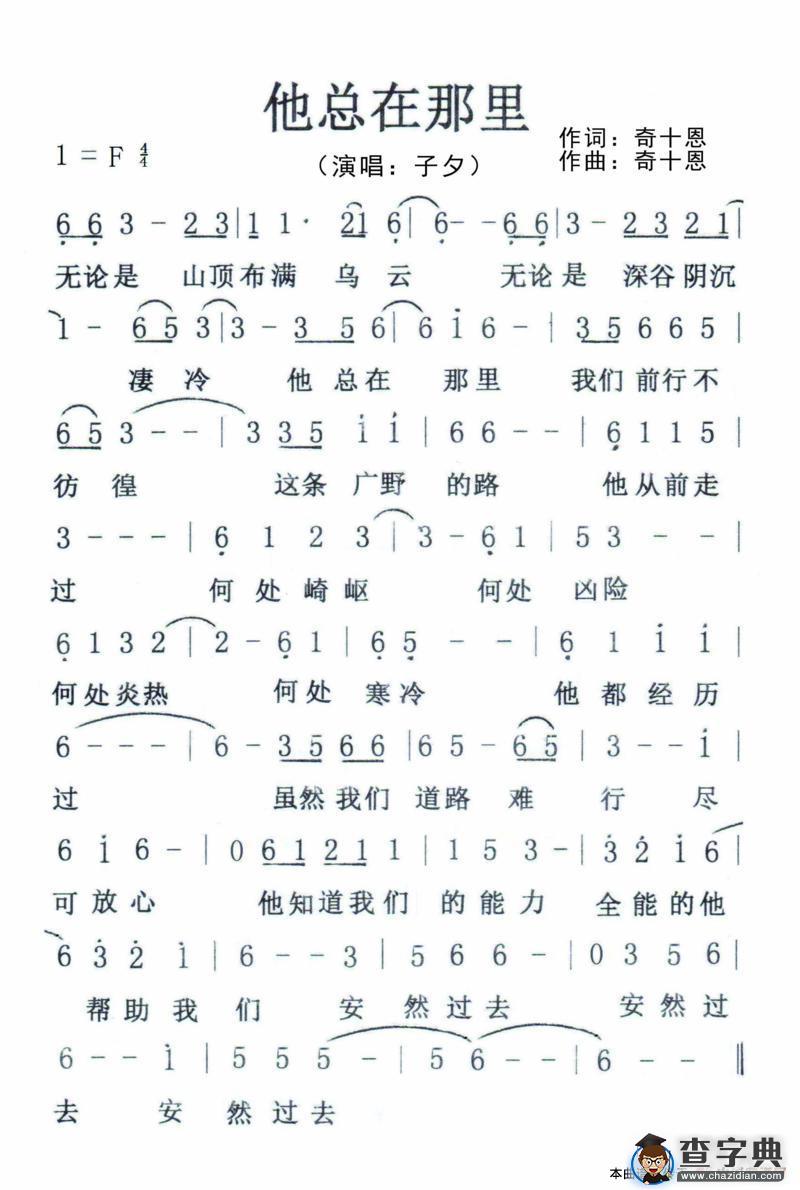 他总在那里
1 = F 4/4
（演唱：子夕）
作词：奇十恩
作曲：奇十恩
6 6 3 - 2 3 | 1 1 1 · 2 1 6 | 6 - - 6 6 | 3 - 2 3 2 1 |
无论是 山顶布满 乌云 无论是 深谷阴沉
1 - 6 5 3 | 3 - 3 5 6 | 6 i 6 - | 3 5 6 6 5 |
凄冷 他总在 那里 我们前行不
6 5 3 - - | 3 3 5 i i | 6 6 - - | 6 1 1 5 |
彷徨 这条广野的路 他从前走
3 - - - | 6 1 2 3 | 3 - 6 1 | 5 3 - - |
过 何处崎岖 何处 凶险
6 1 3 2 | 2 - 6 1 | 6 5 - - | 6 1 i i |
何处炎热 何处寒冷 他都经历
6 - - - | 6 - 3 5 6 6 | 6 5 - 6 5 | 3 - - i |
过 虽然我们道路难行尽
6 i 6 - | 0 6 1 2 1 1 | 1 5 3 - | 3 2 i 6 |
可放心 他知道我们的能力 全能的他
6 3 2 i | 6 - - 3 | 5 6 6 - | 0 3 5 6 |
帮助我们 安然过去 安然过
6 - - i | 5 5 5 | 5 - - | 5 6 - - | 6 - - ‖
去 安然过去
本曲
查字典
www.chazidian.com